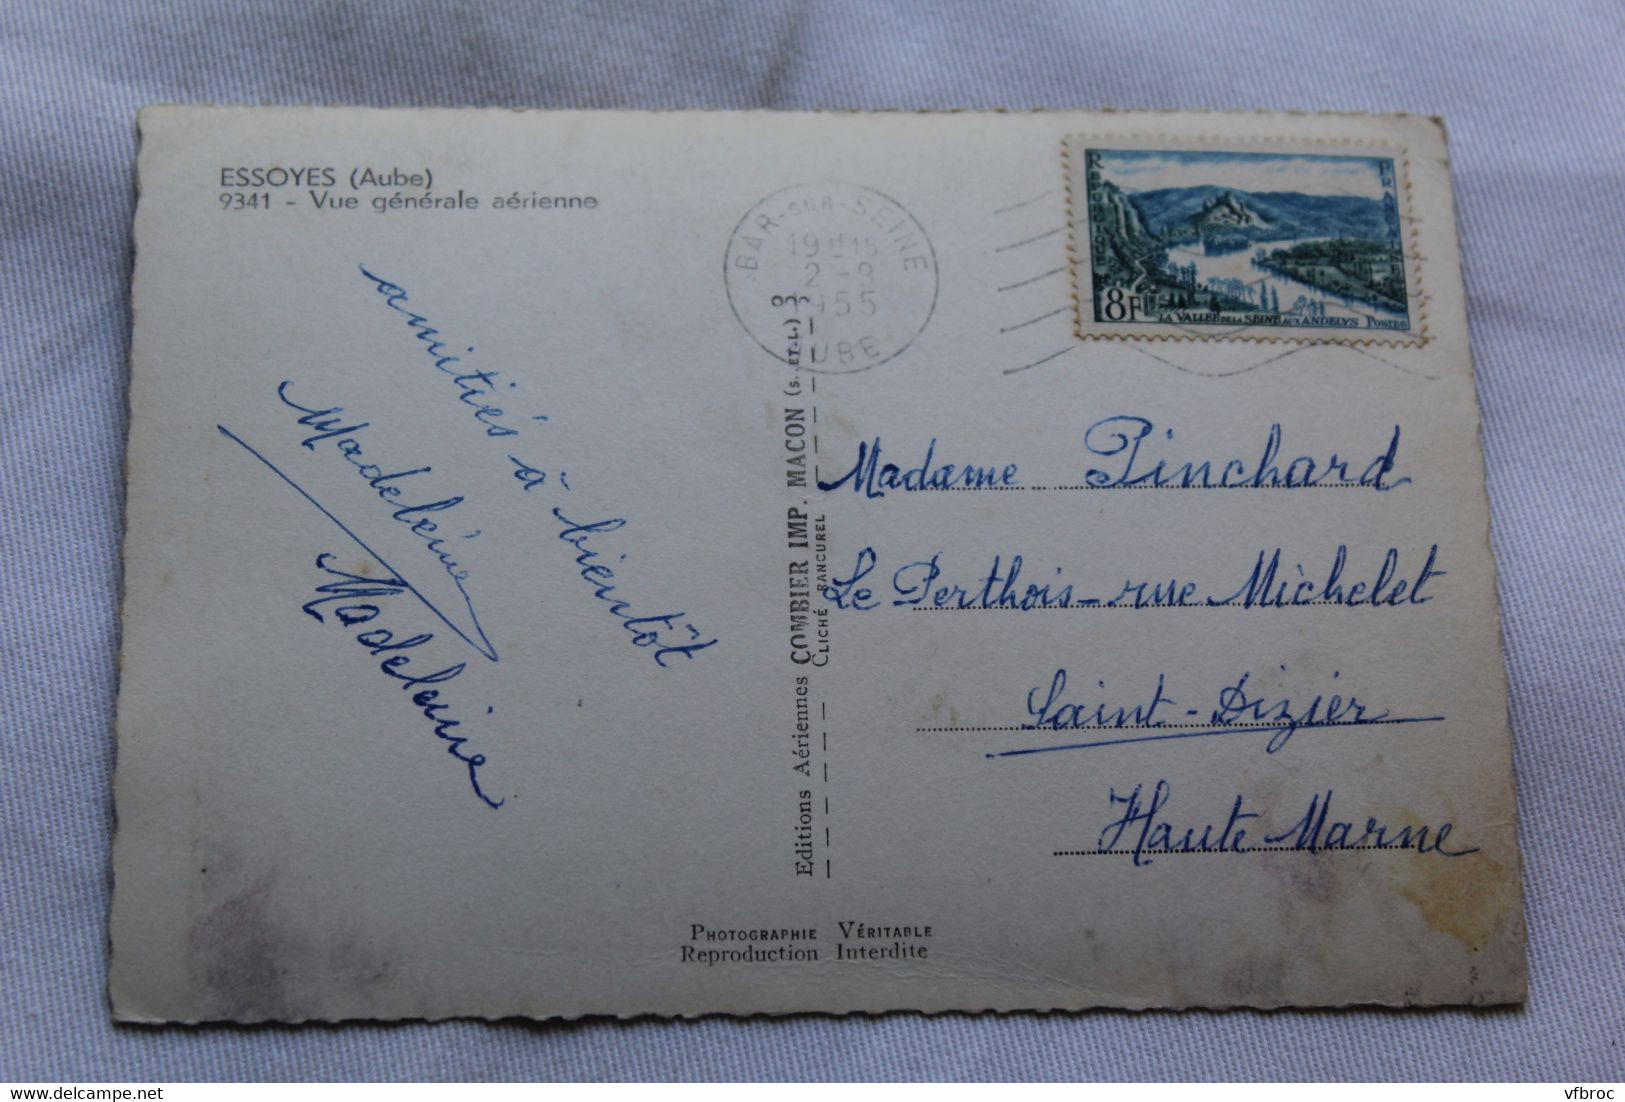 ESSOYES (Aube)
9341 - Vue générale aérienne
amitiés à bientôt
Madeleine
Madeleine
BAR-SUR-SEINE
19H15
2-9
1955
AUBE
RÉPUBLIQUE FRANÇAISE
8F
LA VALLÉE DE LA SEINE AUX ANDELYS POSTES
Editions Aériennes COMBIER IMP. MACON (S.-ET-L.)
CLICHÉ RANCUREL
Madame Pinchard
Le Perthois - rue Michelet
Saint-Dizier
Haute Marne
PHOTOGRAPHIE VÉRITABLE
Reproduction Interdite
vfbroc